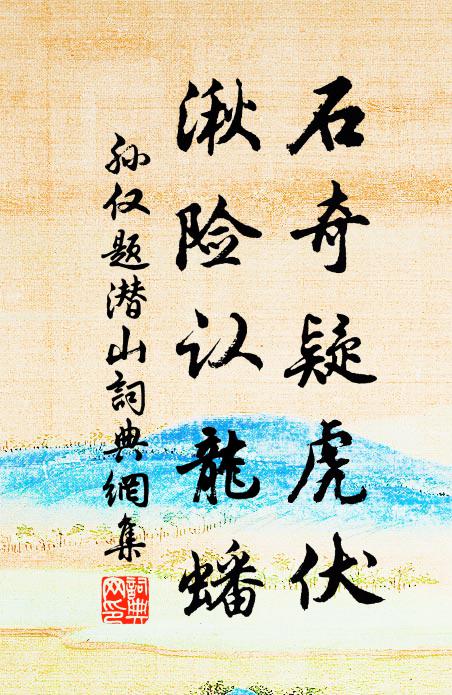 石奇疑虎伏
湫险认龍蟠
孙仅题潜山詞典網集
詞典